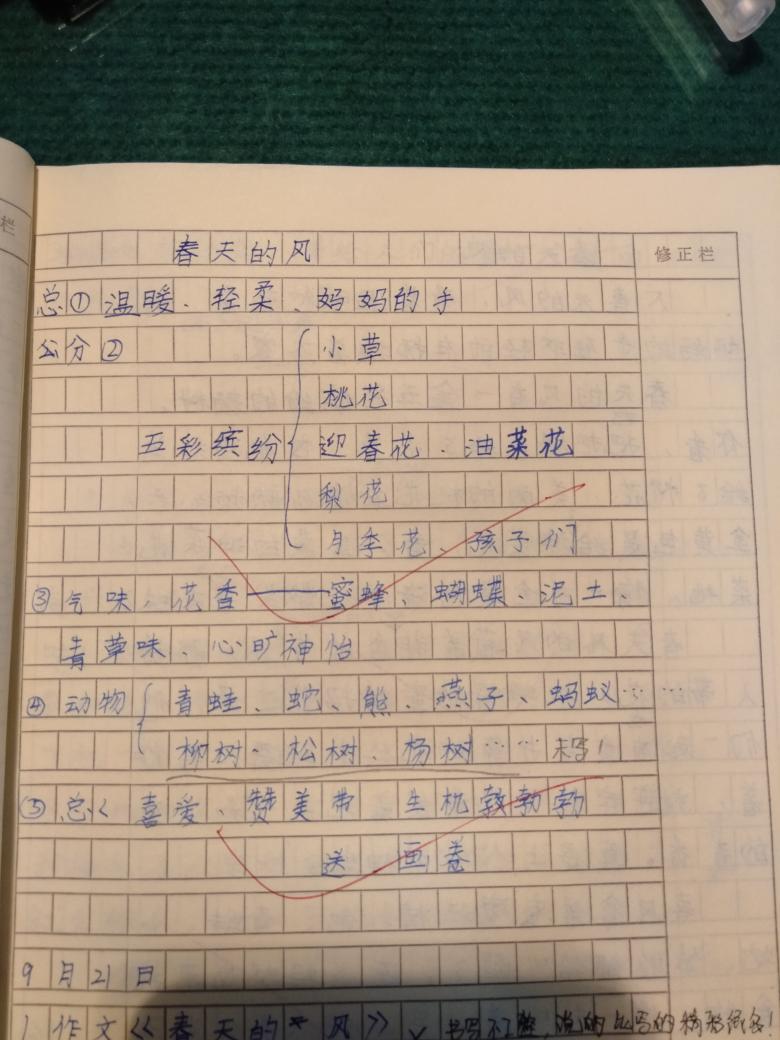 栏
修正栏
春天的风
总①温暖、轻柔、妈妈的手
分②
小草
桃花
五彩缤纷 迎春花、油菜花
梨花
月季花、孩子们
③气味、花香——蜜蜂、蝴蝶 泥土、
青草味、心旷神怡
④动物 青蛙、蛇、熊、燕子、蚂蚁……
柳树、松树、杨树…… 未写!
⑤总 喜爱、赞美带 生机勃勃勃
送 画卷
9月21日
1作文《春天的 风》 书写不 ,说的比写的精彩很多!